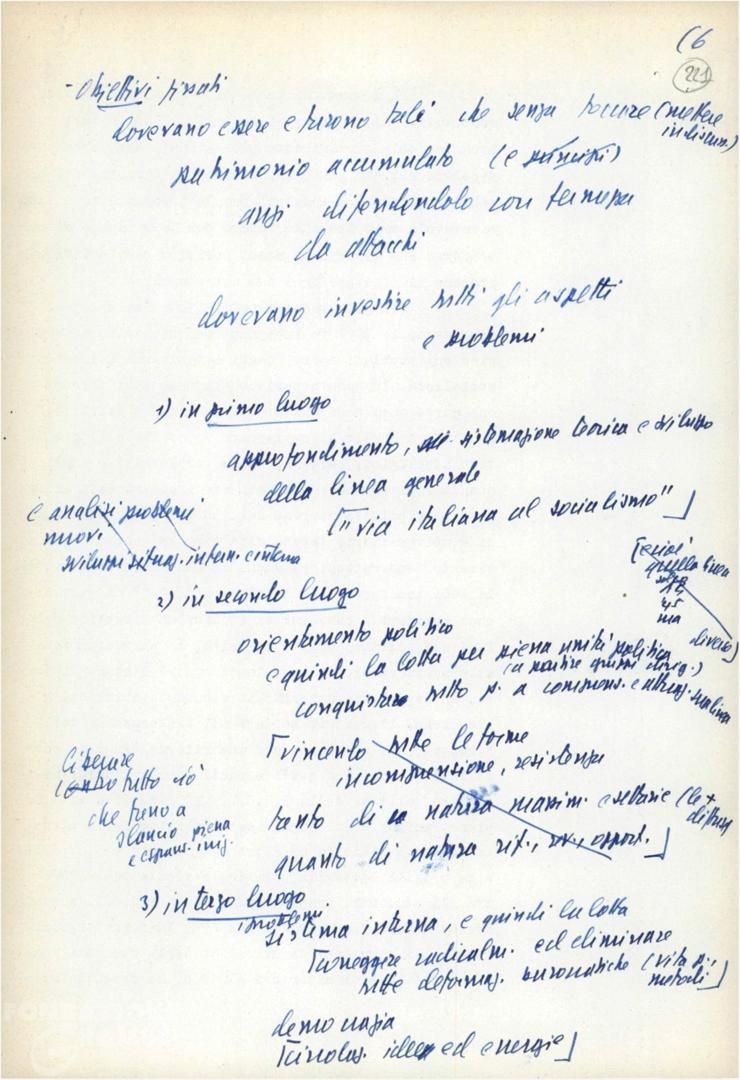 (6
221
- Obiettivi fissati
dovevano essere e furono tali che senza toccare (mettere
in discuss.)
patrimonio accumulato (e principi)
anzi difendendolo con fermezza
da attacchi
dovevano investire tutti gli aspetti
e problemi
1) in primo luogo
approfondimento, sistemazione teorica e sviluppo
della linea generale
["via italiana al socialismo"]
e analisi problemi
nuovi
sviluppi situaz. intern. e interna
[cioè
quella linea
44
45
ma
diversa]
2) in secondo luogo
orientamento politico
e quindi la lotta per piena unità politica
(a partire quindi dirig.)
conquistare tutto p. a comprens. e attuaz. sua linea
[vincendo tutte le forme
incomprensione, resistenza
tanto di natura massim. e settarie (le +
diffuse)
quanto di natura rif., opport.]
Liberare
contro tutto ciò
che freno a
slancio piena
e espans. iniz.
3) in terzo luogo
problemi
sistema interna, e quindi la lotta
[correggere radicalm. ed eliminare
tutte deformaz. burocratiche (vita p.,
metodi]
democrazia
[circolaz. idee ed energie]
FON